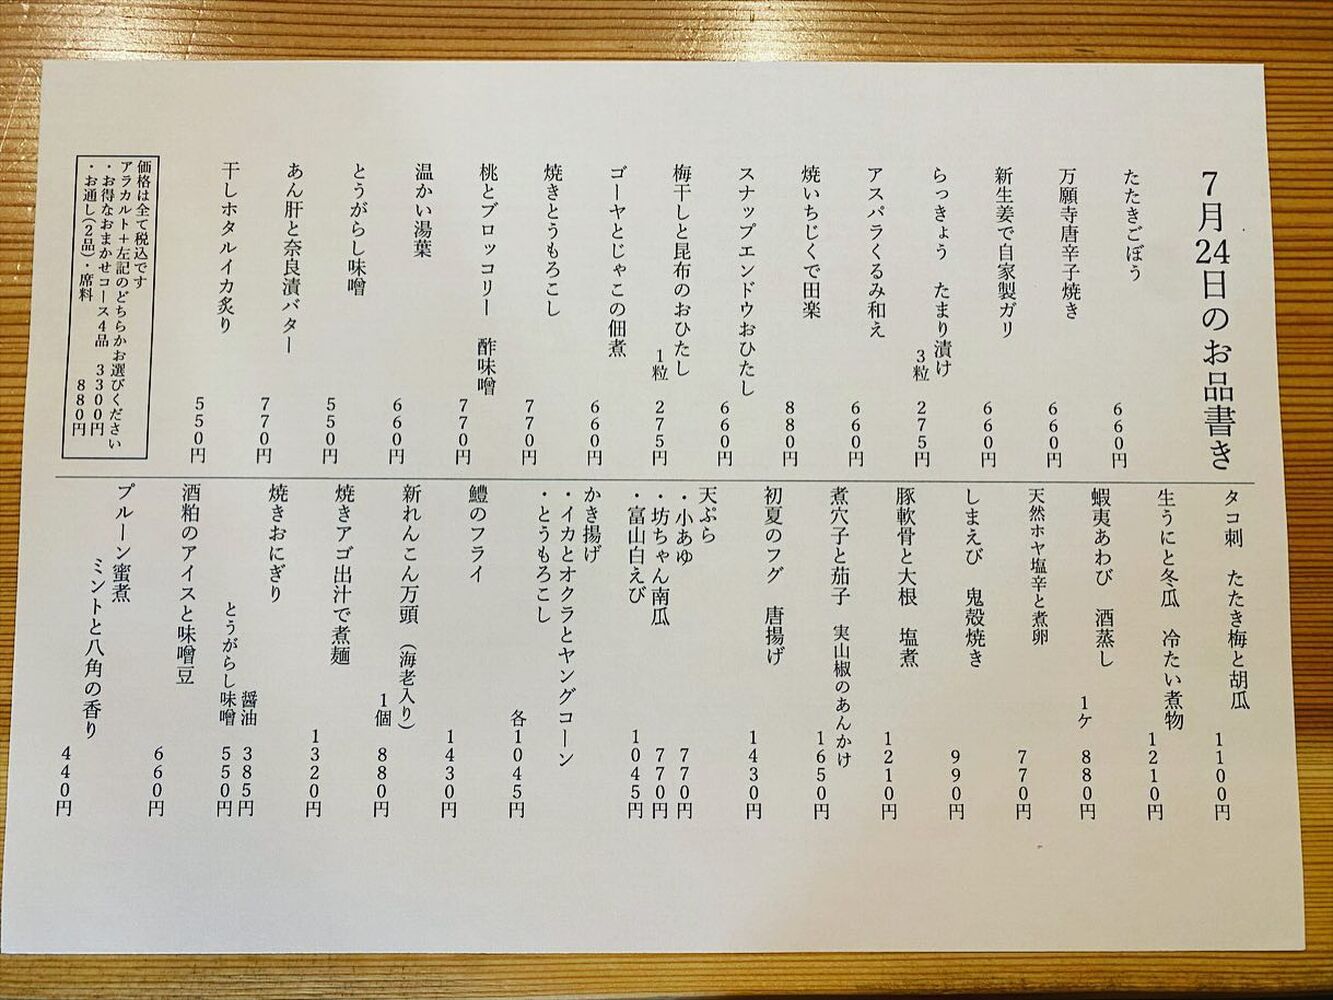 7月24日のお品書き
たたきごぼう 660円
万願寺唐辛子焼き 660円
新生姜で自家製ガリ 660円
らっきょう たまり漬け 3粒 275円
アスパラくるみ和え 660円
焼いちじくで田楽 880円
スナップエンドウおひたし 660円
梅干しと昆布のおひたし 1粒 275円
ゴーヤとじゃこの佃煮 660円
焼きとうもろこし 770円
桃とブロッコリー 酢味噌 770円
温かい湯葉 660円
とうがらし味噌 550円
あん肝と奈良漬バター 770円
干しホタルイカ炙り 550円
価格は全て税込です
アラカルト+左記のどちらかお選びください
・お得なおまかせコース4品 3300円
・お通し(2品)・席料 880円
タコ刺 たたき梅と胡瓜 1100円
生うにと冬瓜 冷たい煮物 1210円
蝦夷あわび 酒蒸し 1ケ 880円
天然ホヤ塩辛と煮卵 770円
しまえび 鬼殻焼き 990円
豚軟骨と大根 塩煮 1210円
煮穴子と茄子 実山椒のあんかけ 1650円
初夏のフグ 唐揚げ 1430円
天ぷら
・小あゆ 770円
・坊ちゃん南瓜 770円
・富山白えび 1045円
かき揚げ
・イカとオクラとヤングコーン
・とうもろこし 各1045円
鱧のフライ 1430円
新れんこん万頭 (海老入り) 1個 880円
焼きアゴ出汁で煮麺 1320円
焼きおにぎり 醤油 385円
とうがらし味噌 550円
酒粕のアイスと味噌豆 660円
プルーン蜜煮
ミントと八角の香り 440円